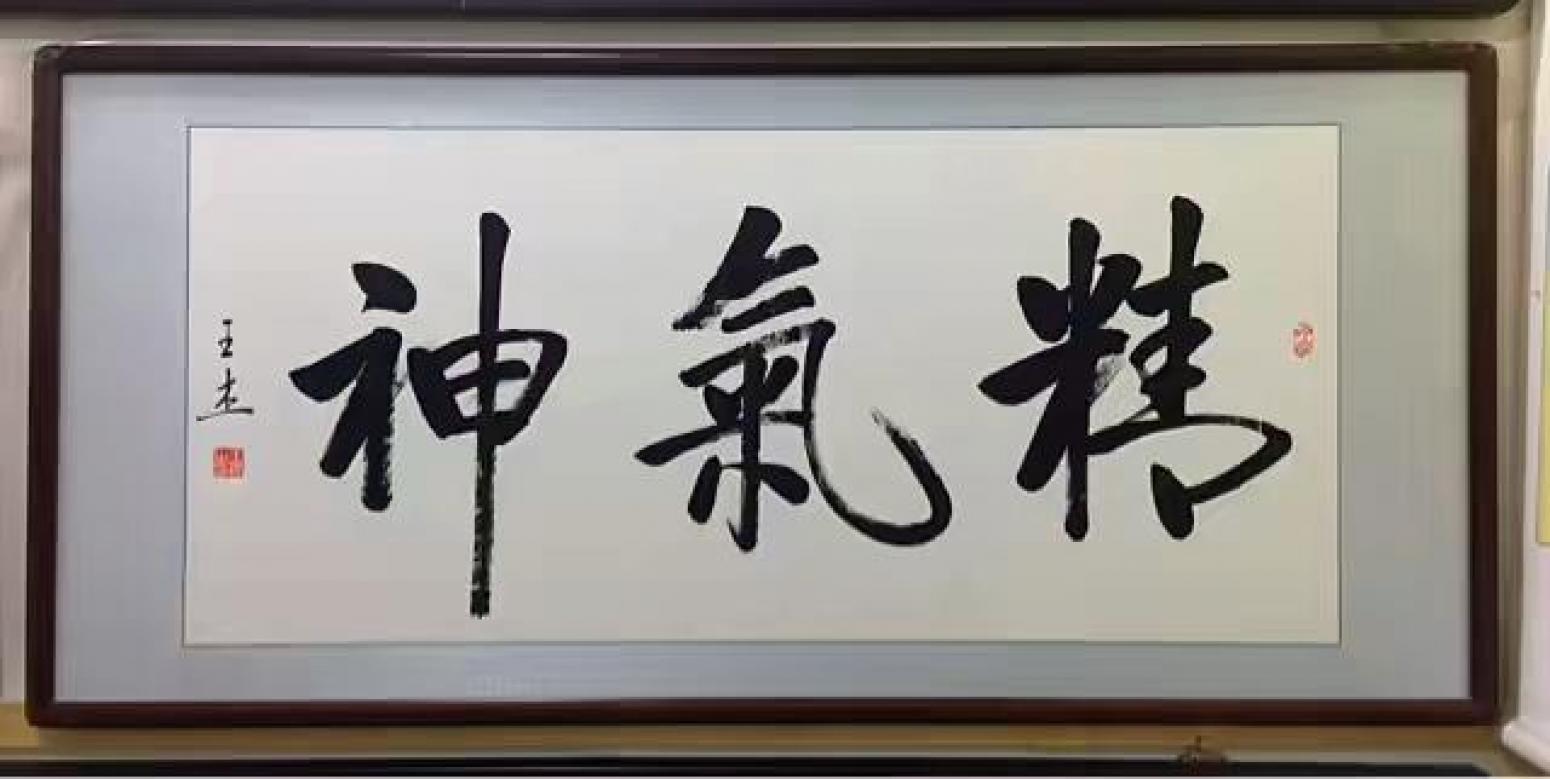 精氣神
王杰